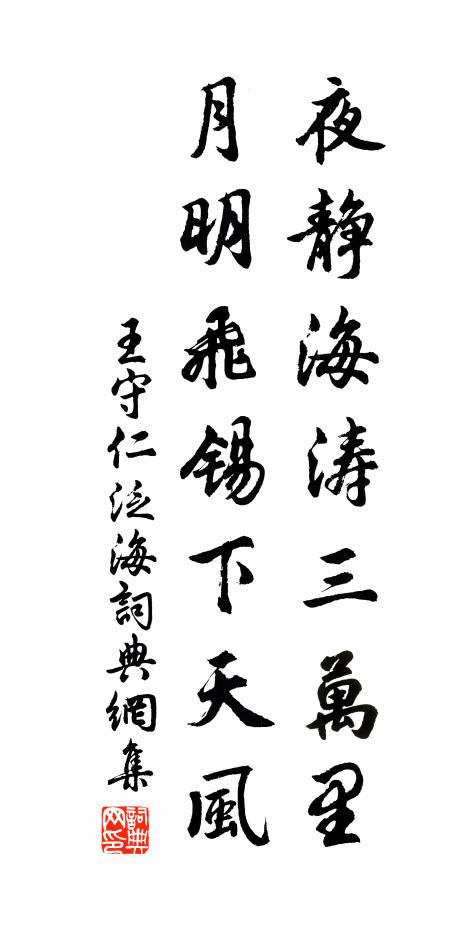 夜静海涛三萬里
月明飛锡下天風
王守仁泛海詞典網集
詞典网印